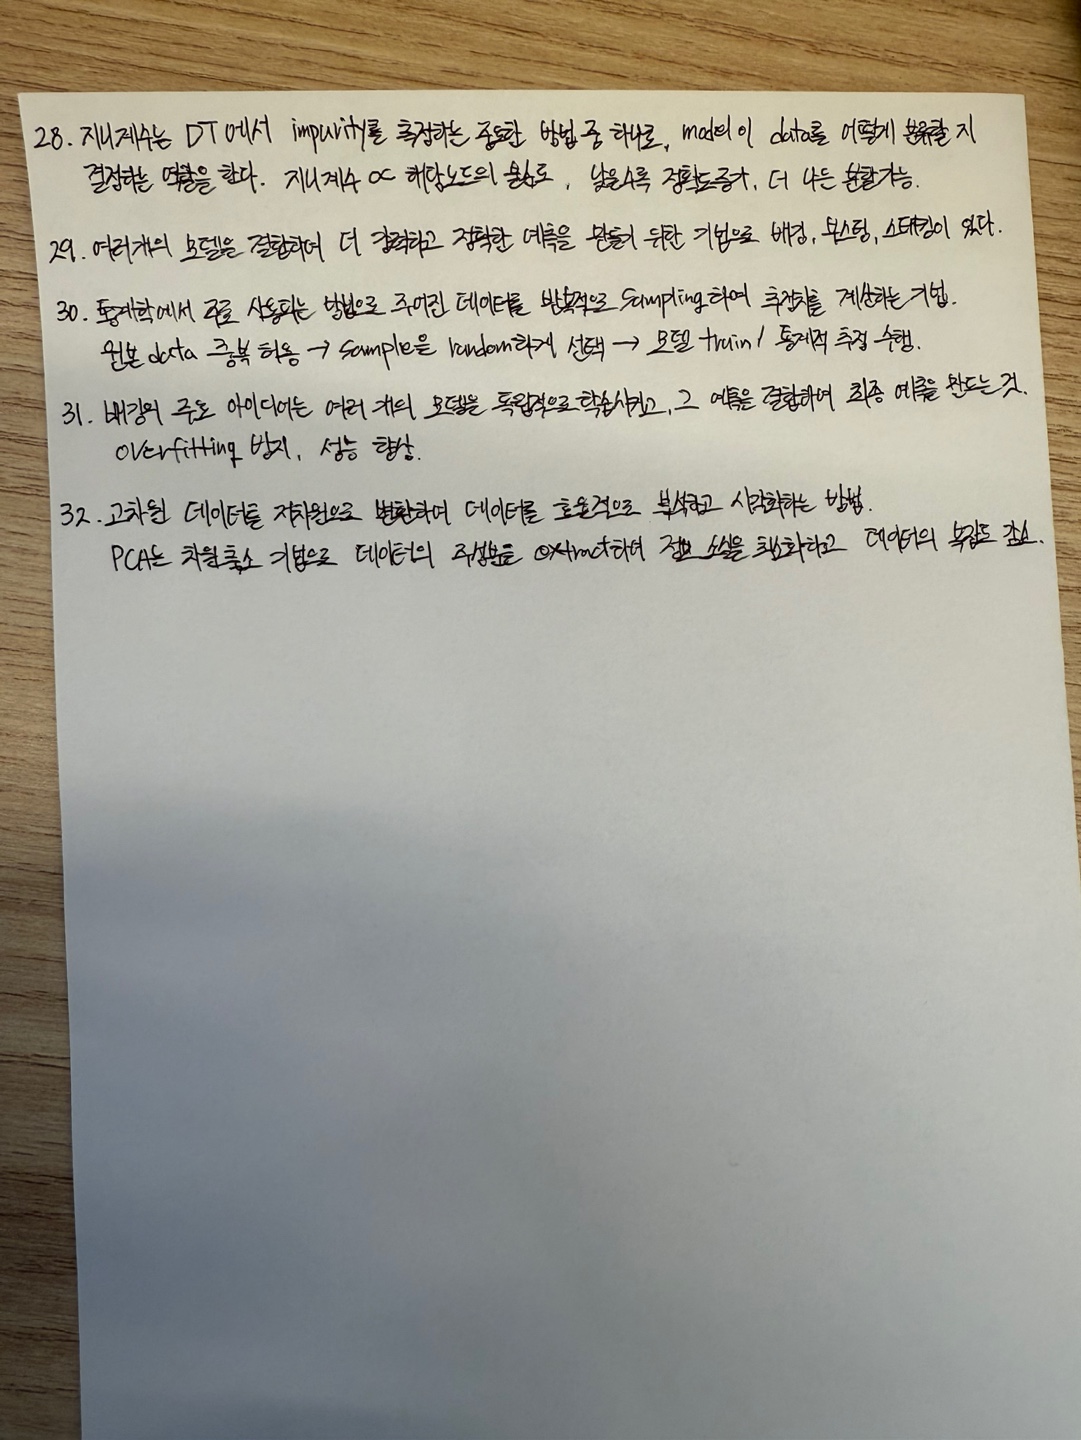 28. 지니계수는 DT에서 impurity를 측정하는 중요한 방법 중 하나로, model이 data를 어떻게 분류할 지
결정하는 역할을 한다. 지니계수 ∝ 해당노드의 불순도, 낮을수록 정확도증가, 더 나은 분할가능.
29. 여러개의 모델을 결합하여 더 강력하고 정확한 예측을 만들기 위한 기법으로 배깅, 부스팅, 스태킹이 있다.
30. 통계학에서 주로 사용되는 방법으로 주어진 데이터를 반복적으로 Sampling하여 추정치를 계산하는 기법.
원본 data 중복 허용 → Sample을 random하게 선택 → 모델 train / 통계적 추정 수행.
31. 배깅의 주요 아이디어는 여러 개의 모델을 독립적으로 학습시키고, 그 예측을 결합하여 최종 예측을 만드는 것.
overfitting 방지, 성능 향상.
32. 고차원 데이터를 저차원으로 변환하여 데이터를 효율적으로 분석하고 시각화하는 방법.
PCA는 차원축소 기법으로 데이터의 주성분을 extract하여 정보 손실을 최소화하고 데이터의 복잡도 감소.